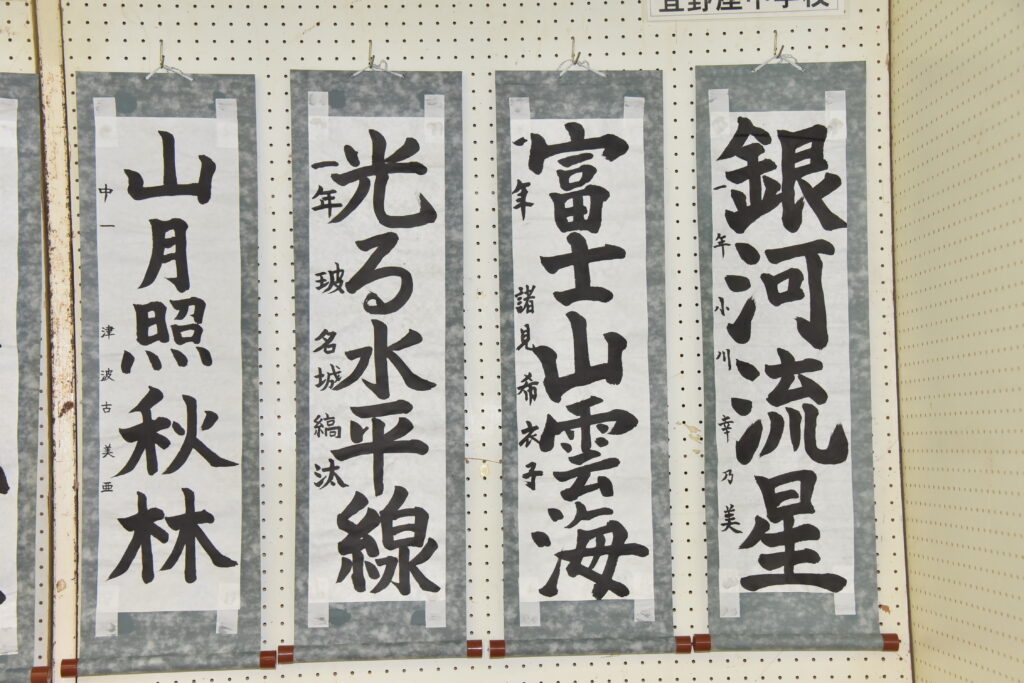 宜野座中学校
銀河流星
一年 小川幸乃美
富士山雲海
一年 諸見希衣子
光る水平線
一年 玻名城縞汰
山月照秋林
中一 津波古美亜